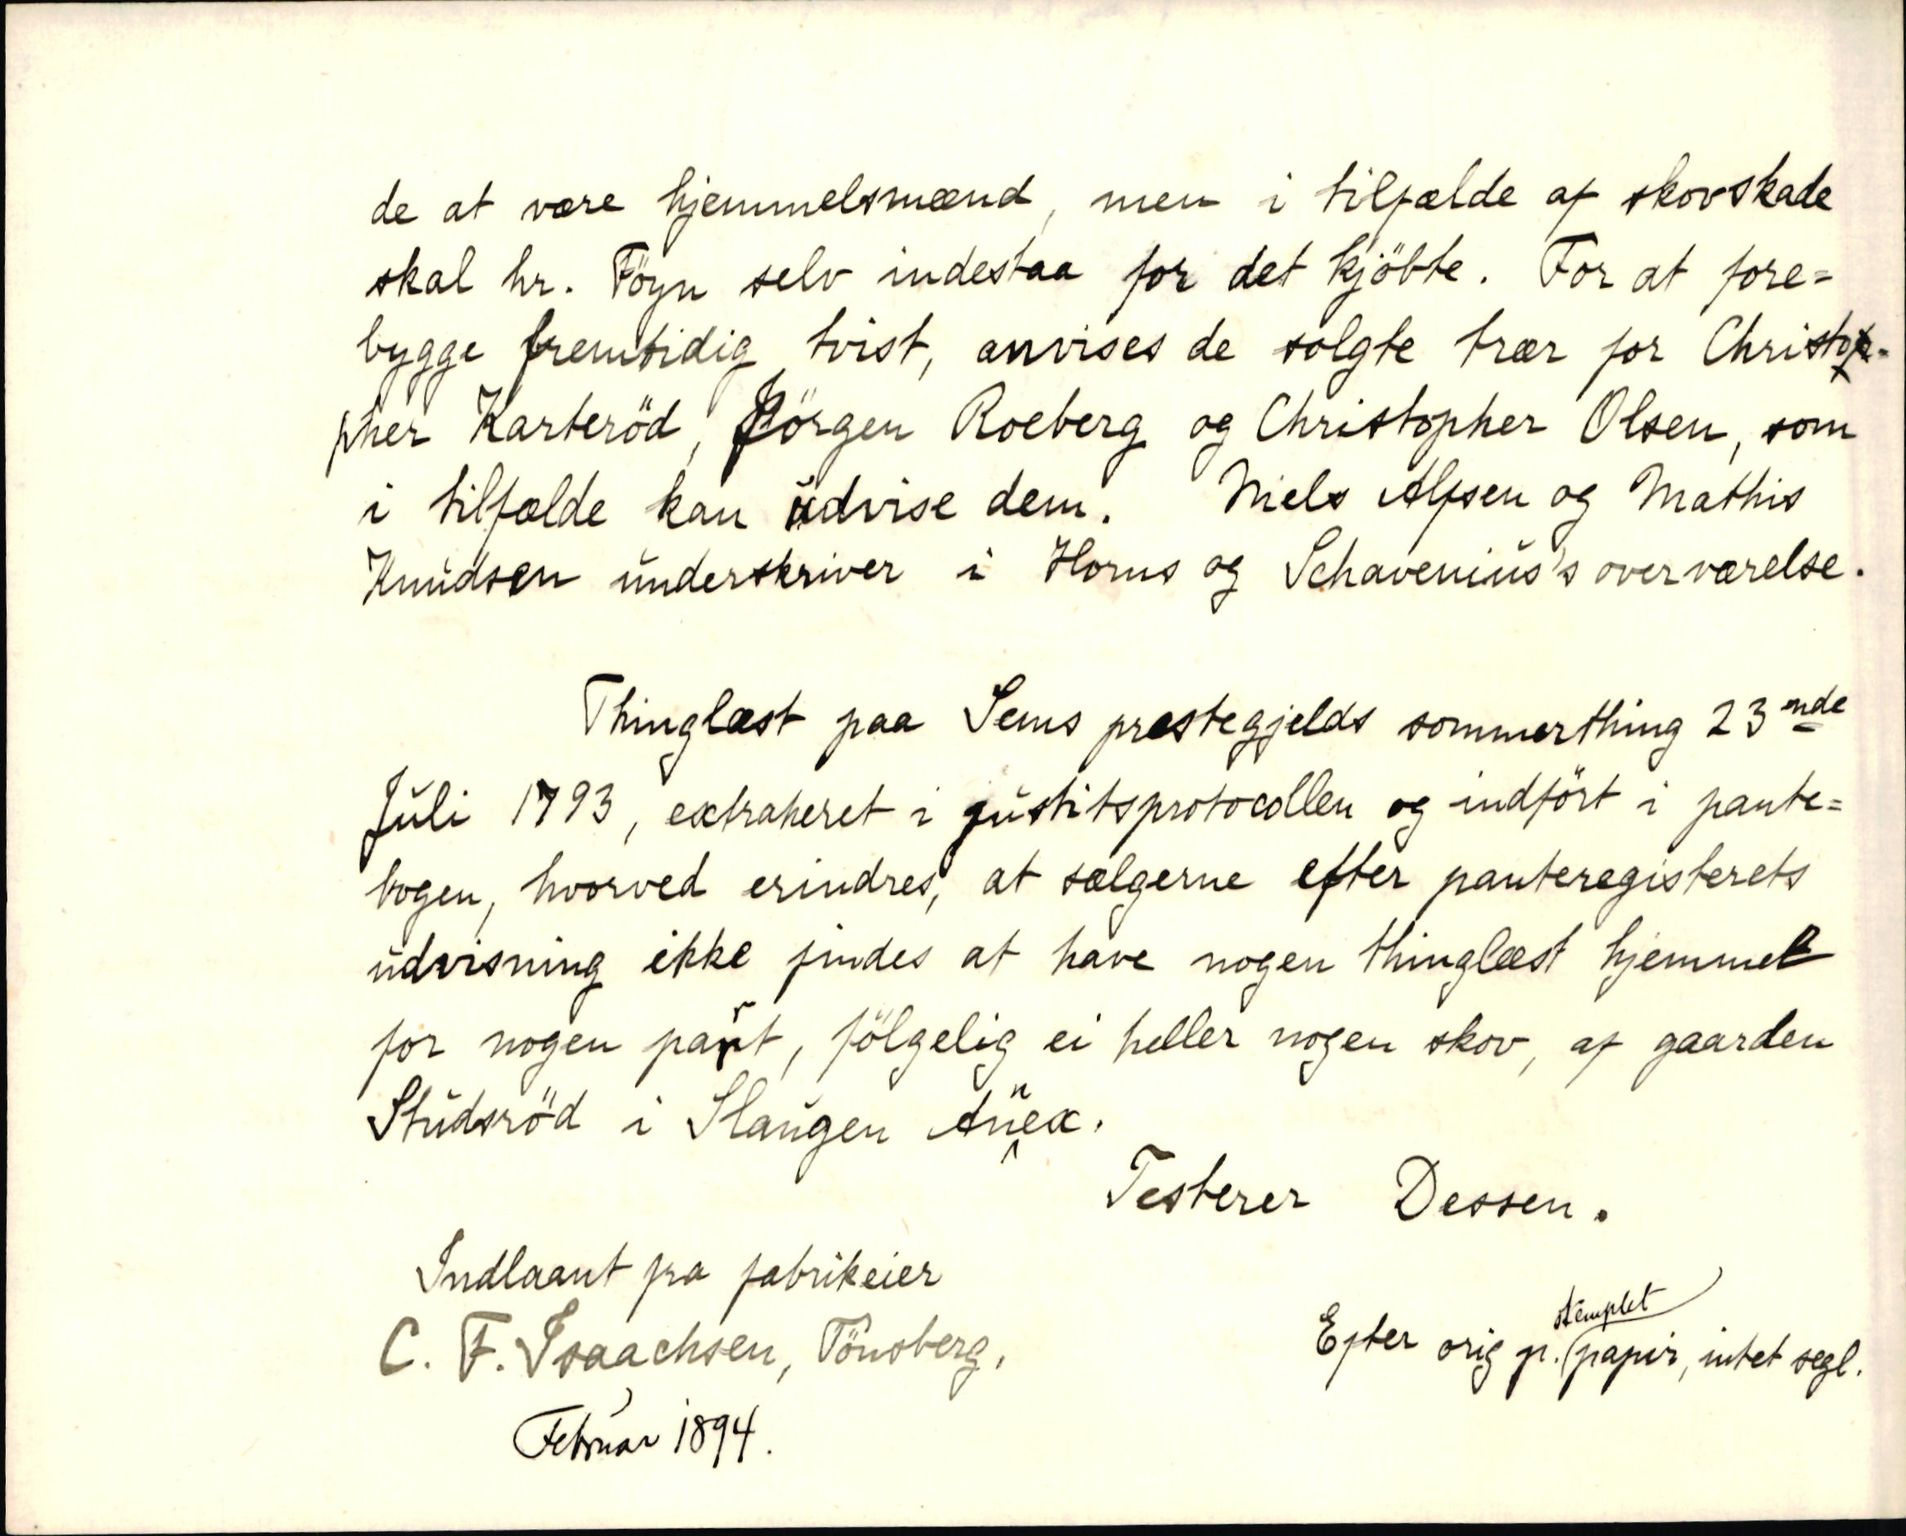 de at være hjemmelsmænd, men i tilfælde af skovskade
skal hr. Föyn selv indestaa for det kjöbte. For at fore=
bygge fremtidig tvist, anvises de solgte trær for Christo-
pher Karteröd, Jörgen Roeberg og Christopher Olsen, som
i tilfælde kan udvise dem. Niels Alfsen og Mathis
Knudsen underskriver i Horns og Schavenius's overværelse.
Thinglæst paa Sems præstegjelds sommerthing 23nde
Juli 1793, extraheret i justitsprotocollen og indfört i pante=
bogen, hvorved erindres, at sælgerne efter panteregisterets
udvisning ikke findes at have nogen thinglæst hjemmel
for nogen part, fölgelig ei heller nogen skov, af gaarden
Studsröd i Slaugen Annex.
Testerer Dessen.
Indlaant fra fabrikeier
C. F. Isaachsen, Tönsberg,
Februar 1894.
Efter orig p. stemplet papir, intet segl.